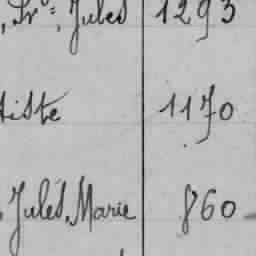 , Fr<sup>s</sup>, Jules 1293
tiste 1170
, Jules, Marie 860